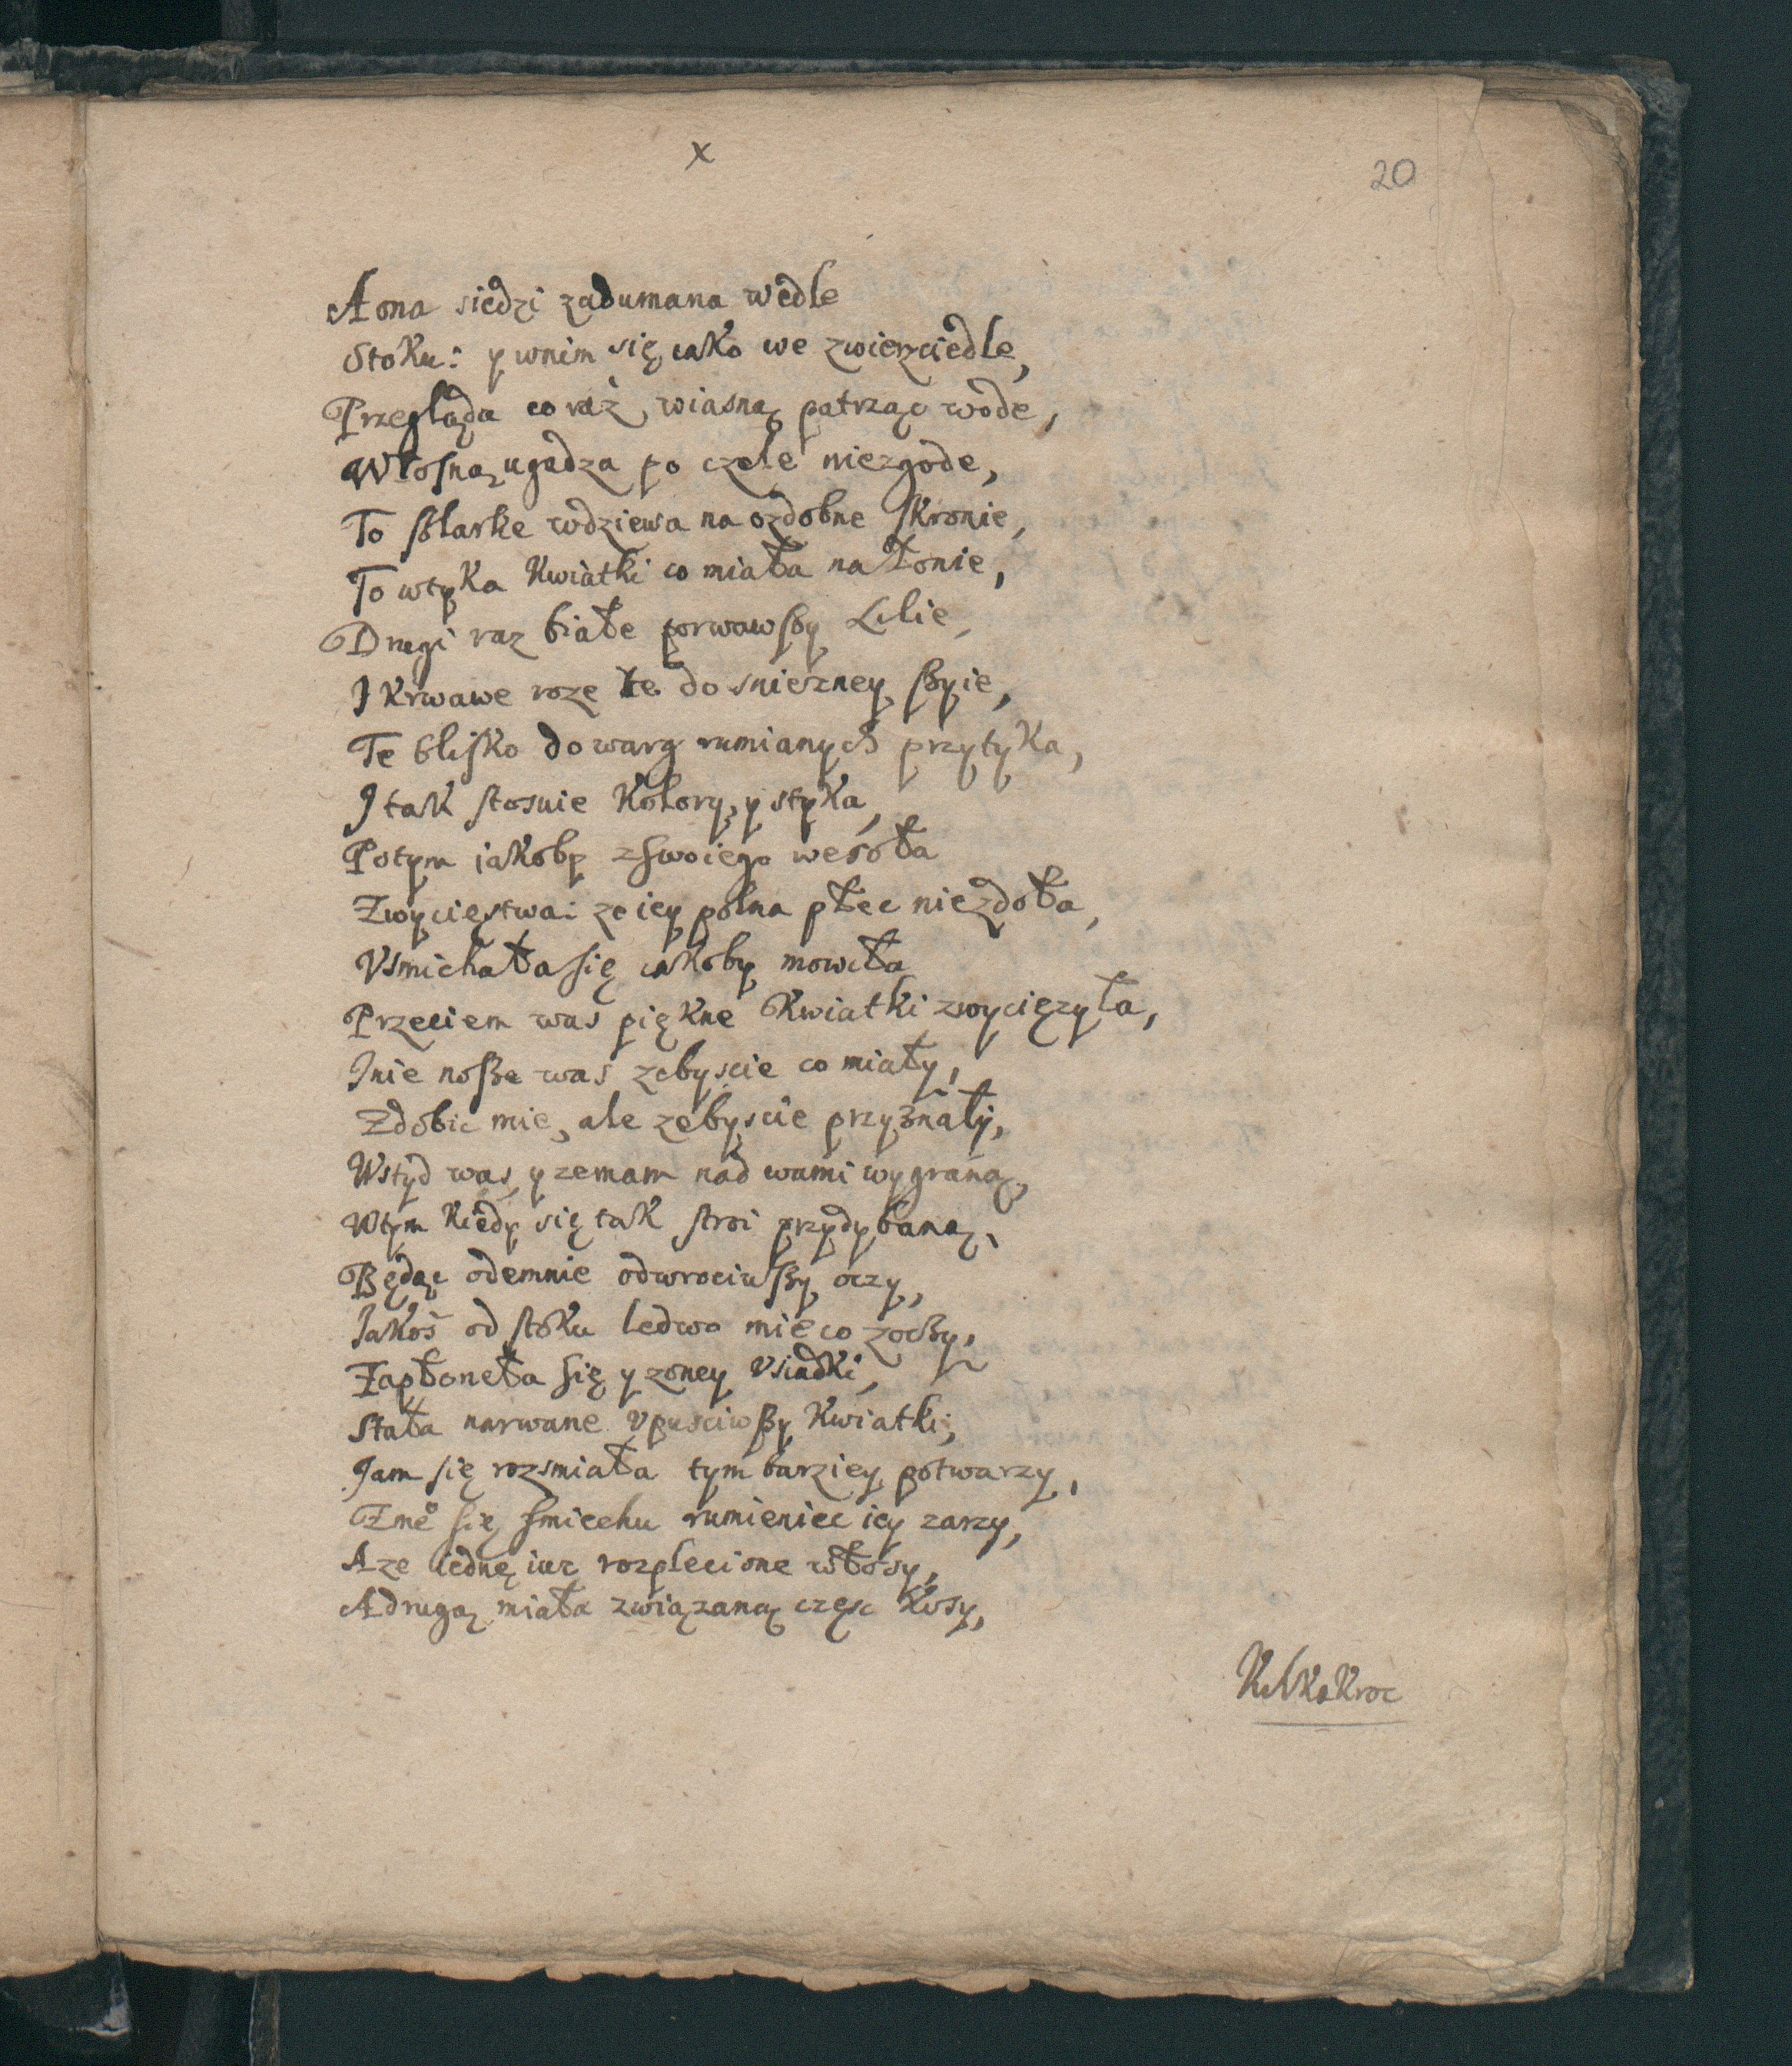 x
20
A ona siedzi zadumana wedle
Stoku: y wnim się iako we zwierzciedle,
Przegląda co raz, wiasną patrząc wode,
Włosną ugadza po czele niezgode,
To ßlarke wdziewa na ozdobne skronie,
To wtyka kwiatki co miała na łonie,
Drugi raz białe porwawßy Lilie,
I krwawe roze te do sniezney ßyie,
Te blisko do warg rumianych przytyka,
I tak stosuie kolory, y styka,
Potym iakoby zswoiego wesoła
Zwycięstwa: ze iey polna płec niezdoła,
Vsmichała się iakoby mowiła
Przeciem was piękne kwiatki zwyciężyła,
I nie noßę was zebyscie co miały,
Zdobic mie, ale zebyscie przyznały,
Wstyd was, y ze mam nad wami wygraną,
Wtym kiedy się tak stroi przydybaną,
Będąc odemnie odwrociwßy oczy,
Jakoś od stoku ledwo mie co zoczy,
Zapłoneła się y zoney vsiadki,
Stała narwane vpusciwßy kwiatki,
Jam się rozsmiała tym barziey potwarzy,
Zme° się smiechu rumieniec iey zarzy,
A ze iednę iuz rozplecione włosy,
A drugą miała związaną częsc kosy,
Kilkakroc